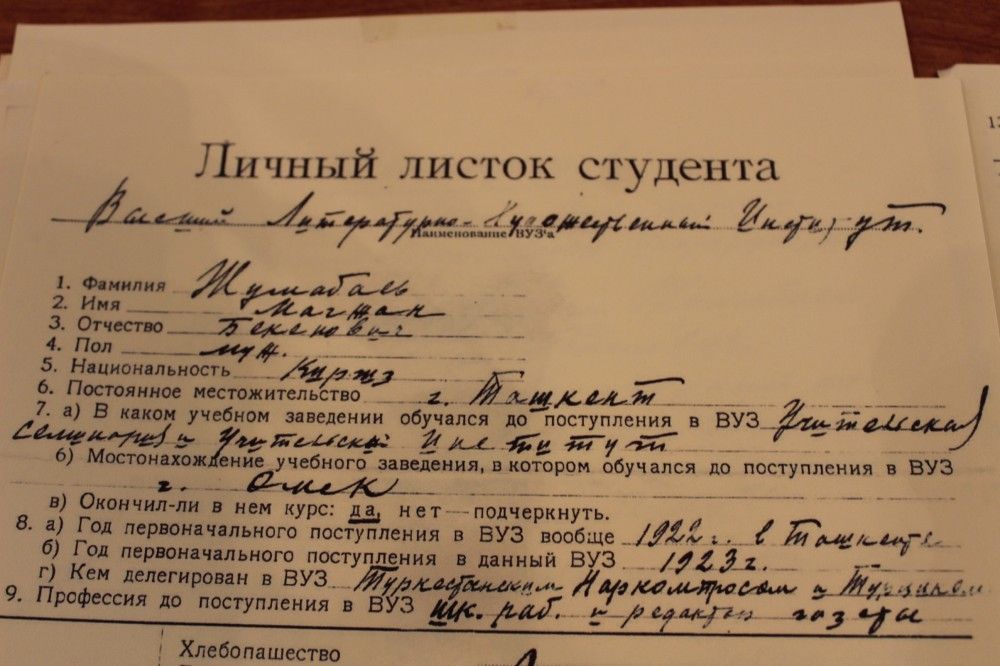 Личный листок студента
Высший Литературно-Художественный Институт.
Наименование ВУЗ'а
1. Фамилия Жумабаев
2. Имя Магжан
3. Отчество Бекенович
4. Пол муж.
5. Национальность Киргиз
6. Постоянное местожительство г. Ташкент
7. а) В каком учебном заведении обучался до поступления в ВУЗ Учительская
семинария и Учительский Институт
б) Мостонахождение учебного заведения, в котором обучался до поступления в ВУЗ
г. Омск
в) Окончил-ли в нем курс: да, нет—подчеркнуть.
8. а) Год первоначального поступления в ВУЗ вообще 1922 г. в Ташкенте
б) Год первоначального поступления в данный ВУЗ 1923 г.
г) Кем делегирован в ВУЗ Туркестанским Наркомпросом и
9. Профессия до поступления в ВУЗ шк. раб. и редактор газеты
Хлебопашество